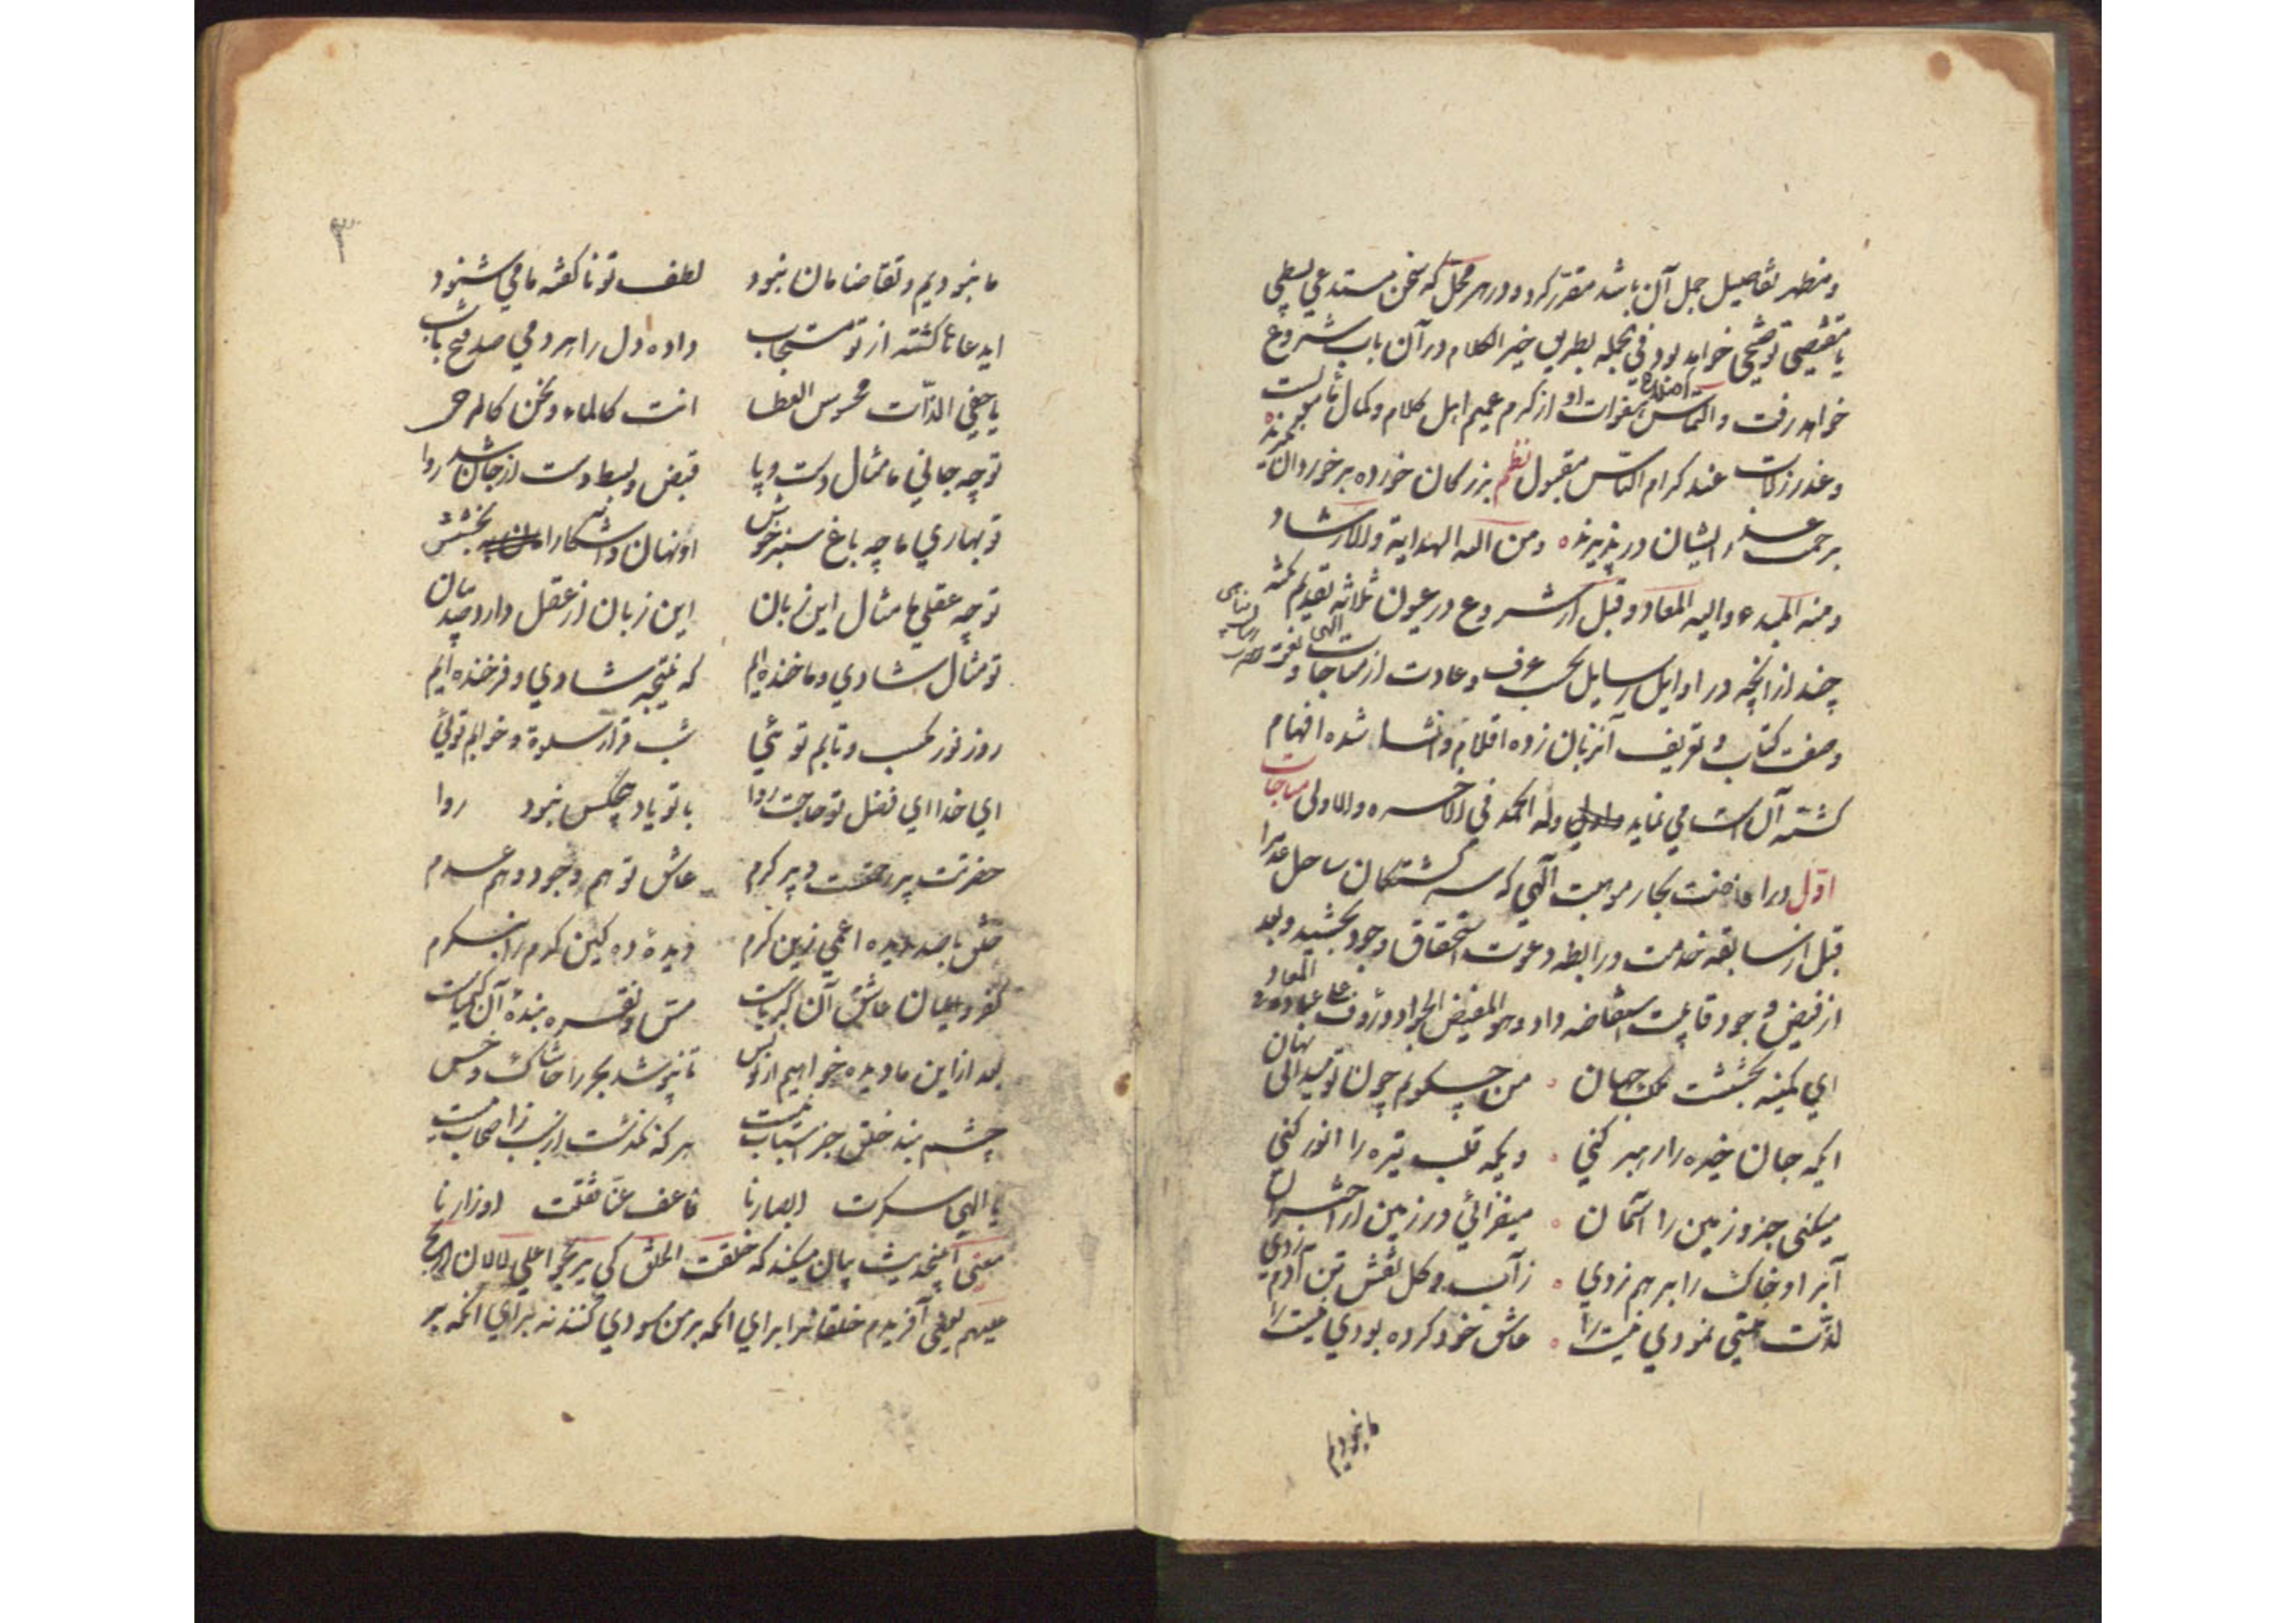 و مظهر تفاصیل جمل آن باشد مقرر کرد و در هر محل که سخن مستدعی بسطی
یا مقتضی توضیحی خواهد بود فی الجمله بطریق خیر الکلام در آن باب شروع
خواهد رفت و التماس اصلاح هفوات او از کرم عمیم اهل کلام و کمال
و عذر زلات عند کرام الناس مقبول نظم بزرکان خورده بر خوردان نکیرند
برحمت عذر ایشان در پذیرند و من الله الهدایة والارشاد
و منه المبدء والیه المعاد و قبل از شروع در عیون ثلاثه تقدیم نکته
چند از انچه در اوایل رسایل بحسب عرف و عادت از مناجات الهی و نعت حضرت رسالت پناهی
وصف کتاب و تعریف آنزبان زده اقلام و انشاء شده افهام
کشته آن است می نماید وله الحمد فی الاخره والاولی مناجات
اول در افاضت بحار موهبت آلهی که سرکشتکان ساحل عدم را
قبل از سابقه خدمت و رابطه دعوت استحقاق وجود بخشید و بعد
از فیض وجود قابلیت استفاضه داد و هو المفیض الجواد و رؤف علی عباده المعاد
ای کمینه بخششت ملک جهان من چه کویم چون تو میدانی نهان
ایکه جان خیره را رهبر کنی ویکه قلب تیره را انور کنی
میکنی جزو زمین را آسمان میفزائی در زمین از اختران
آب را و خاک را بر هم زدی زآب و کل نقش تن آدم زدی
لذت هستی نمودی نیست را عاشق خود کرده بودی نیست را
ما نبودیم
۳
ما نبودیم و تقاضا مان نبود لطف تو ناکفته ما می شنود
ای دعا ناکشته از تو مستجاب داده دل را هر دمی صد فتح باب
یا خفی الذات محسوس العطا انت کالماء و نحن کالرحی
تو چه جانی ما مثال دست و پا قبض و بسط دست از جان شد روا
تو بهاری ما چه باغ سبز خوش او نهان و آشکارا بخششش
تو چه عقلی ما مثال این زبان این زبان از عقل دارد صد بیان
تو مثال شادی و ما خنده ایم که نتیجه شادی و فرخنده ایم
روز نور مکسب و تابم توئی شب قرار سلوة و خوابم توئی
ای خدا ای فضل تو حاجت روا با تو یاد هیچکس نبود روا
حضرتت پر رحمت و پر کرم عاشق تو هم وجود و هم عدم
خلق با صد دیده اعمی زین کرم دیده ده کین کرم را بنکرم
کفر و ایمان عاشق آن کبریاست مس و نقره بنده آن کیمیاست
بعد ازاین ما دیده خواهیم از تو بس تا نپوشد بحر را خاشاک و خس
چشم بند خلق جز اسباب نیست هر که نکذشت از سبب ز اصحاب نیست
یا الهی سکرت ابصارنا فاعف عنا ثقلت اوزارنا
معنی اینحدیث بیان میکند که خلقت الخلق کی یربحوا علی لا لان اربح
علیهم یعنی آفریدم خلقانرا برای انکه بر من سودی کنند نه برای انکه بر